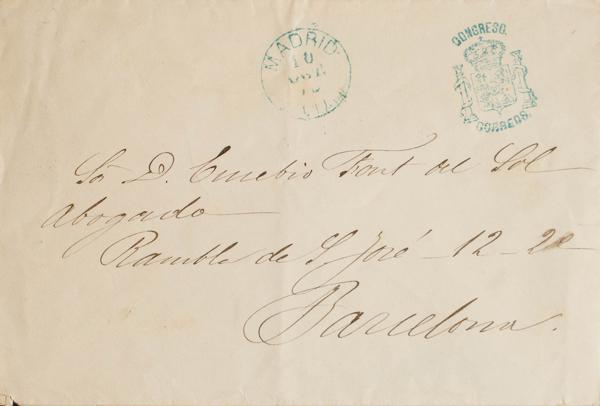 MADRID
10
CONGRESO.
CORREOS.
Sr. D. Eusebio Font del Sol
Abogado
Rambla de S. José - 12 - 2º
Barcelona.